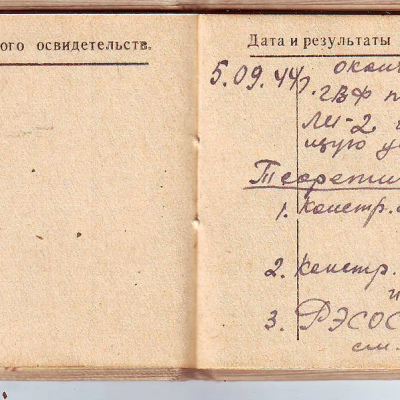 ого освидетельств.
Дата и результаты
5.09.44 г. окон
ГВФ п
ЛИ-2
щую у
Теорети
1. Констр.
2. Констр.
и
3. РЭСОС
см.